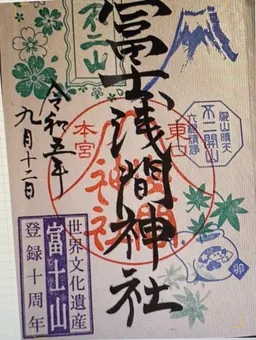 不二山
東口
本宮
登山晴天
不二開山
六根清浄
冨士浅間神社
令和五年
九月十二日
世界文化遺産
富士山
登録十周年
卯